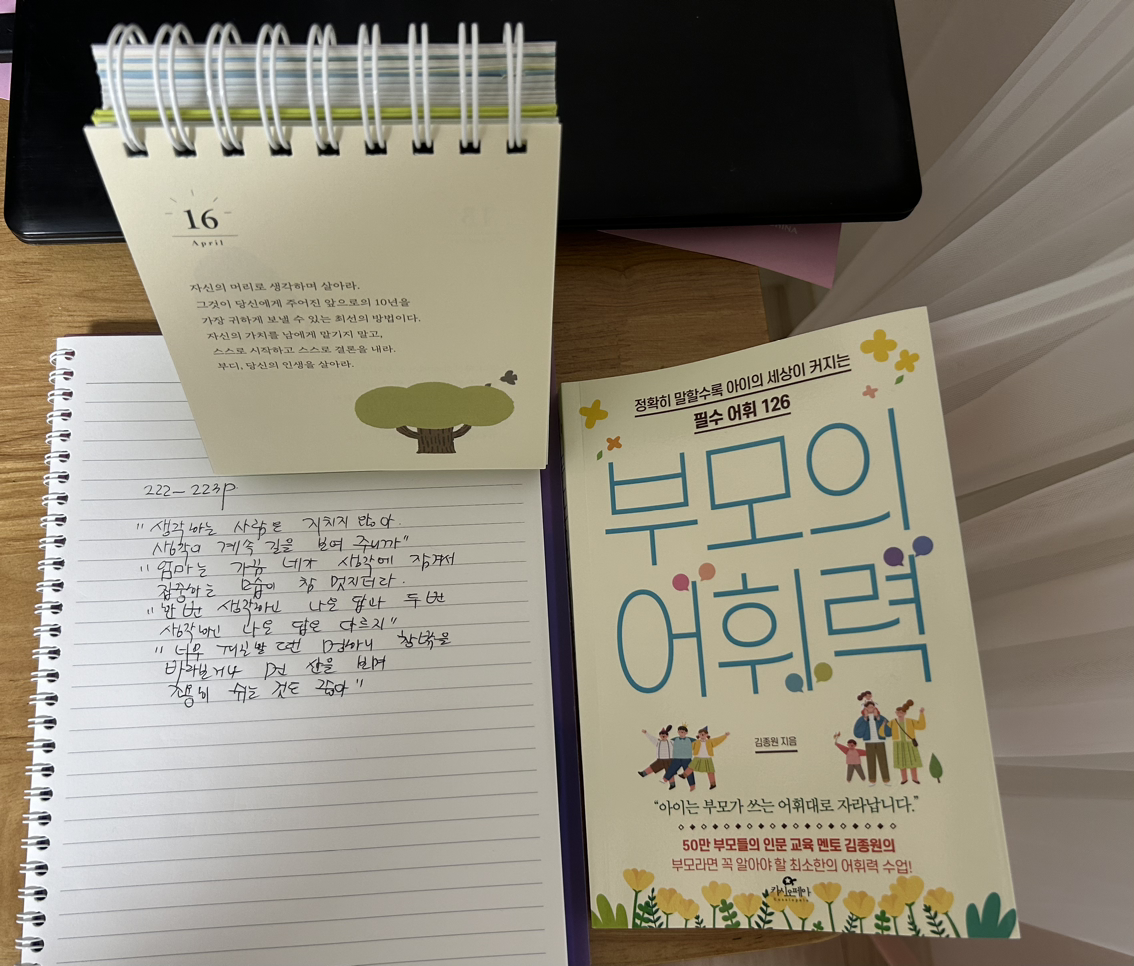 16
April
자신의 머리로 생각하며 살아라.
그것이 당신에게 주어진 앞으로의 10년을
가장 귀하게 보낼 수 있는 최선의 방법이다.
자신의 가치를 남에게 맡기지 말고,
스스로 시작하고 스스로 결론을 내라.
부디, 당신의 인생을 살아라.
222 - 223p
"생각하는 사람은 지치지 않아.
생각이 계속 길을 보여 주니까"
"엄마는 가끔 네가 생각에 잠겨서
집중하는 모습이 참 멋지더라.
"한 번 생각하고 나온 답과 두 번
생각하고 나온 답은 다르지"
"너무 재밌 땐 멍하니 창밖을
바라보거나 먼 산을 보며
조용히 쉬는 것도 좋아"
정확히 말할수록 아이의 세상이 커지는
필수 어휘 126
부모의
어휘력
김종원 지음
"아이는 부모가 쓰는 어휘대로 자라납니다."
50만 부모들의 인문 교육 멘토 김종원의
부모라면 꼭 알아야 할 최소한의 어휘력 수업!
카시오페아